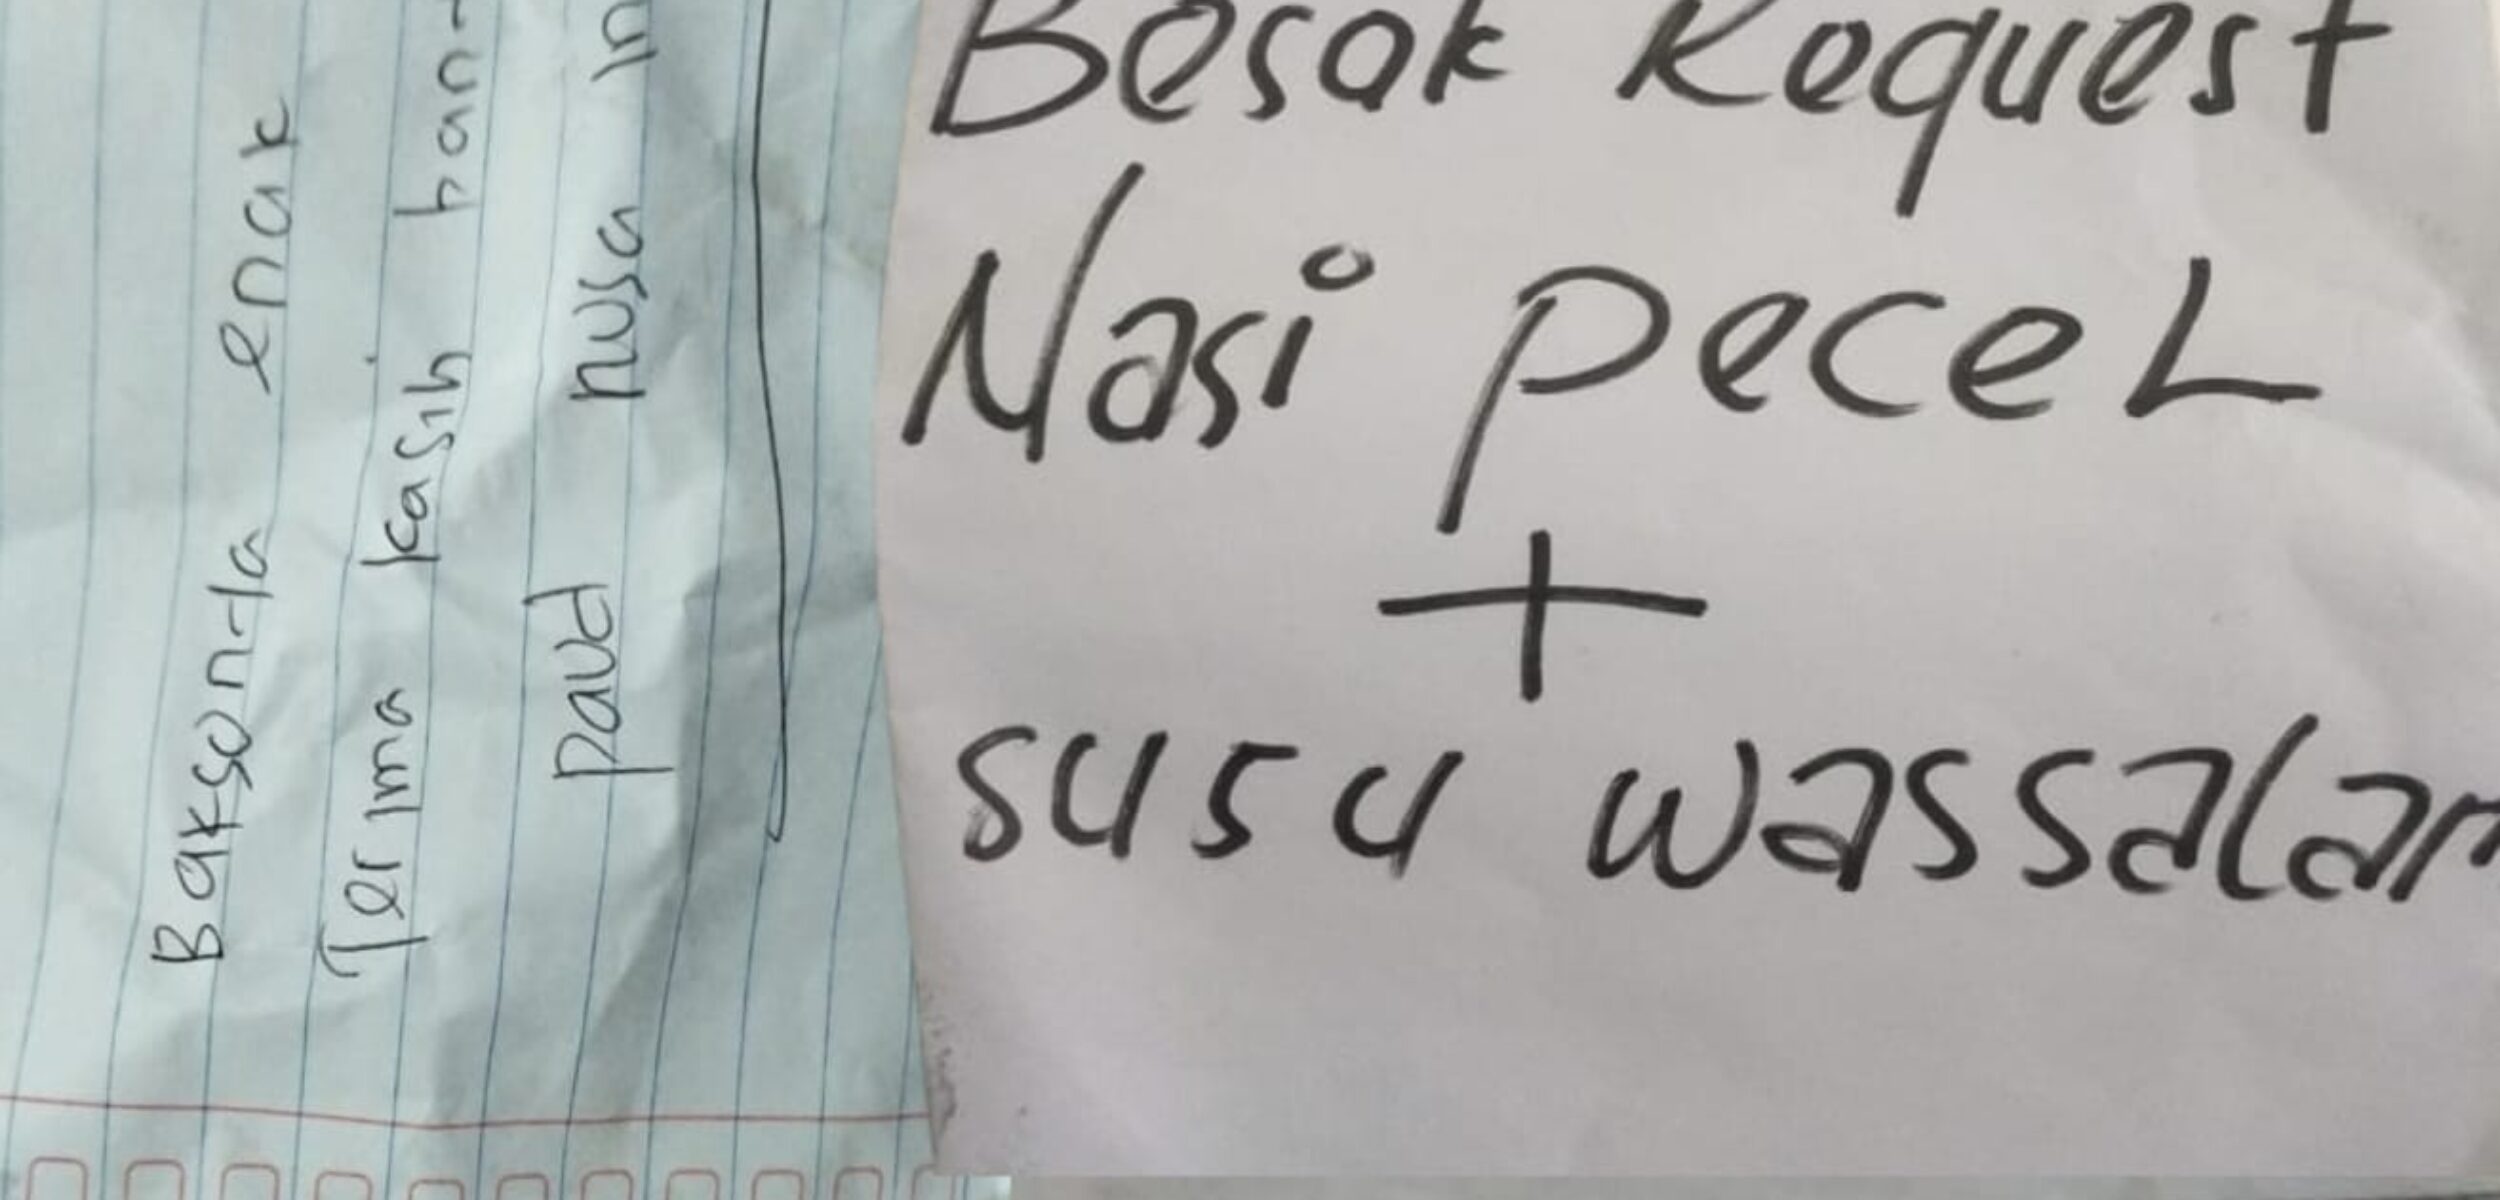 Baksonta enak
Terima kasih
paud nusa
Besok Request
Nasi pecel
+
susu wassalam